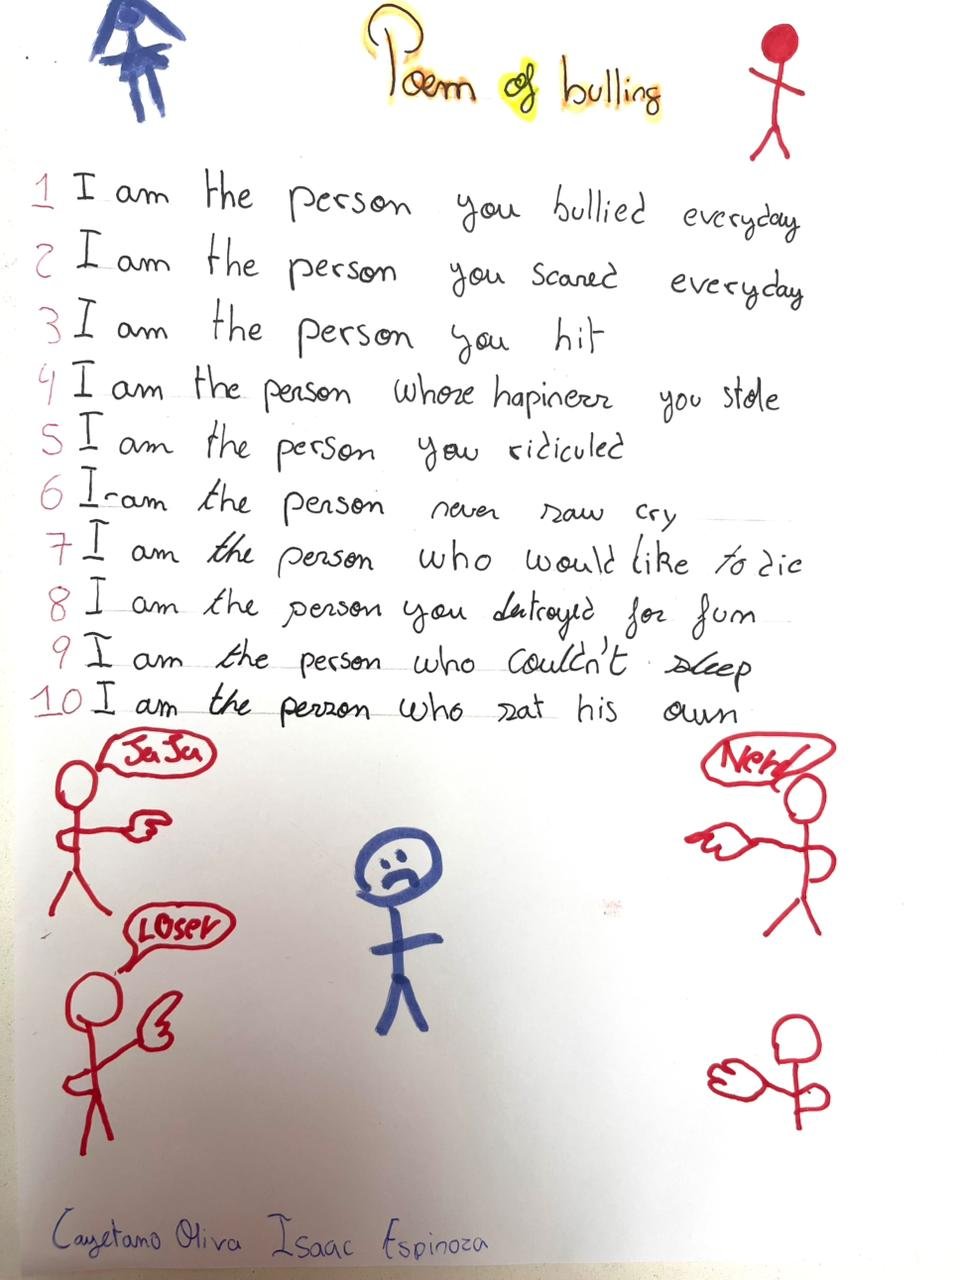 Poem of bulling
1 I am the person you bullied everyday
2 I am the person you scared everyday
3 I am the person you hit
4 I am the person whose hapiness you stole
5 I am the person you ridiculed
6 I am the person never saw cry
7 I am the person who would like to die
8 I am the person you destroyed for fun
9 I am the person who couldn't sleep
10 I am the person who sat his own
JaJa
Nerd
Loser
Cayetano Oliva Isaac Espinoza